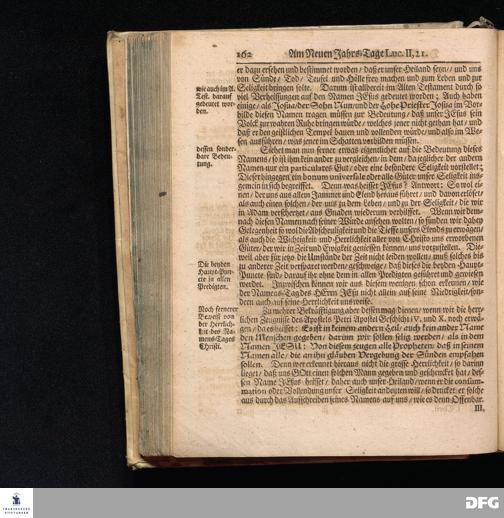 162 Am Neuen Jahrs-Tage Luc. II, 21.
er dazu ersehen und bestimmet worden / daß er unser Heiland seyn / und uns
von Sünde / Tod / Teufel und Hölle frey machen und zum Leben und zur
wie auch im A. Test. darauf gedeutet worden.
Seligkeit bringen solte. Darum ist allbereit im Alten Testament durch so
viel Verheissungen auf den Namen JEsus gedeutet worden; Auch haben
einige / als Josua / der Sohn Nun / und der Hohe Priester Josua im Vor-
bilde diesen Namen tragen müssen zur Bedeutung / daß unser JEsus sein
Volck zur wahren Ruhe bringen würde / welches jener nicht gethan hat / und
daß er den geistlichen Tempel bauen und vollenden würde / und also im We-
sen ausführen / was jener im Schatten vorbilden müssen.
dessen sonderbare Bedeutung.
Siehet man nun ferner etwas eigentlicher auf die Bedeutung dieses
Namens / so ist ihm kein ander zu vergleichen / in dem / da jeglicher der andern
Namen nur ein particulares Gut / oder eine besondere Seligkeit vorstellet;
Dieser hingegen ein bonum universale oder alle Güter unser Seligkeit ins-
gemein in sich begreiffet. Denn was heisset JEsus? Antwort: So wol ei-
nen / der uns aus allem Jammer und Elend heraus führet / und davon erlöset /
als auch einen solchen / der uns zu dem Leben / und zu der Seligkeit / die wir
in Adam verschertzet / aus Gnaden wiederum verhilffet. Wenn wir dem-
nach diesen Namen nach seiner Würde ansehen wolten / so finden wir dabey
Gelegenheit so wol die Abscheuligkeit und die Tieffe unsers Elends zu erwägen /
als auch die Wichtigkeit und Herrlichkeit aller von Christo uns erworbenen
Güter / der wir in Zeit und Ewigkeit geniessen können / uns vorzustellen. Die-
weil aber für jetzo die Umstände der Zeit nicht leiden wollen / muß solches bis
Die beyden Haupt-Puncte in allen Predigten.
zu anderer Zeit versparet werden / geschweige / daß dieses die beyden Haupt-
Puncte sind / darauf ihr ohne dem in allen Predigten geführet und gewiesen
werdet. Inzwischen können wir aus diesem wenigen schon erkennen / wie
der Namens-Tag des HErrn JEsu nicht allein auf seine Niedrigkeit / son-
dern auch auf seine Herrlichkeit uns weise.
Noch fernerer Beweiß von der Herrlichkeit des Namens-Tages Christi.
Zu mehrer Bekräftigung aber dessen mag dienen / wenn wir die herr-
lichen Zeugnisse des Apostels Petri Apostel Geschicht IV. und X. noch erwä-
gen / da es heisset: Es ist in keinem andern Heil / auch kein ander Name
den Menschen gegeben / darinn wir sollen selig werden / als in dem
Namen JESU: Von diesem zeugen alle Propheten / daß in seinem
Namen alle / die an ihn gläuben Vergebung der Sünden empfahen
sollen. Denn wer erkennet hieraus nicht die grosse Herrlichkeit / so darinn
lieget / daß uns GOtt einen solchen Mann gegeben und geschencket hat / des-
sen Name JEsus heisset / daher auch unser Heiland / wenn er die consum-
mation oder Vollendung unser Seligkeit andeuten will / so drucket er solche
aus durch das Aufschreiben seines Namens auf uns / wie es denn Offenbar.
III.
FRANCKESCHE STIFTUNGEN
DFG